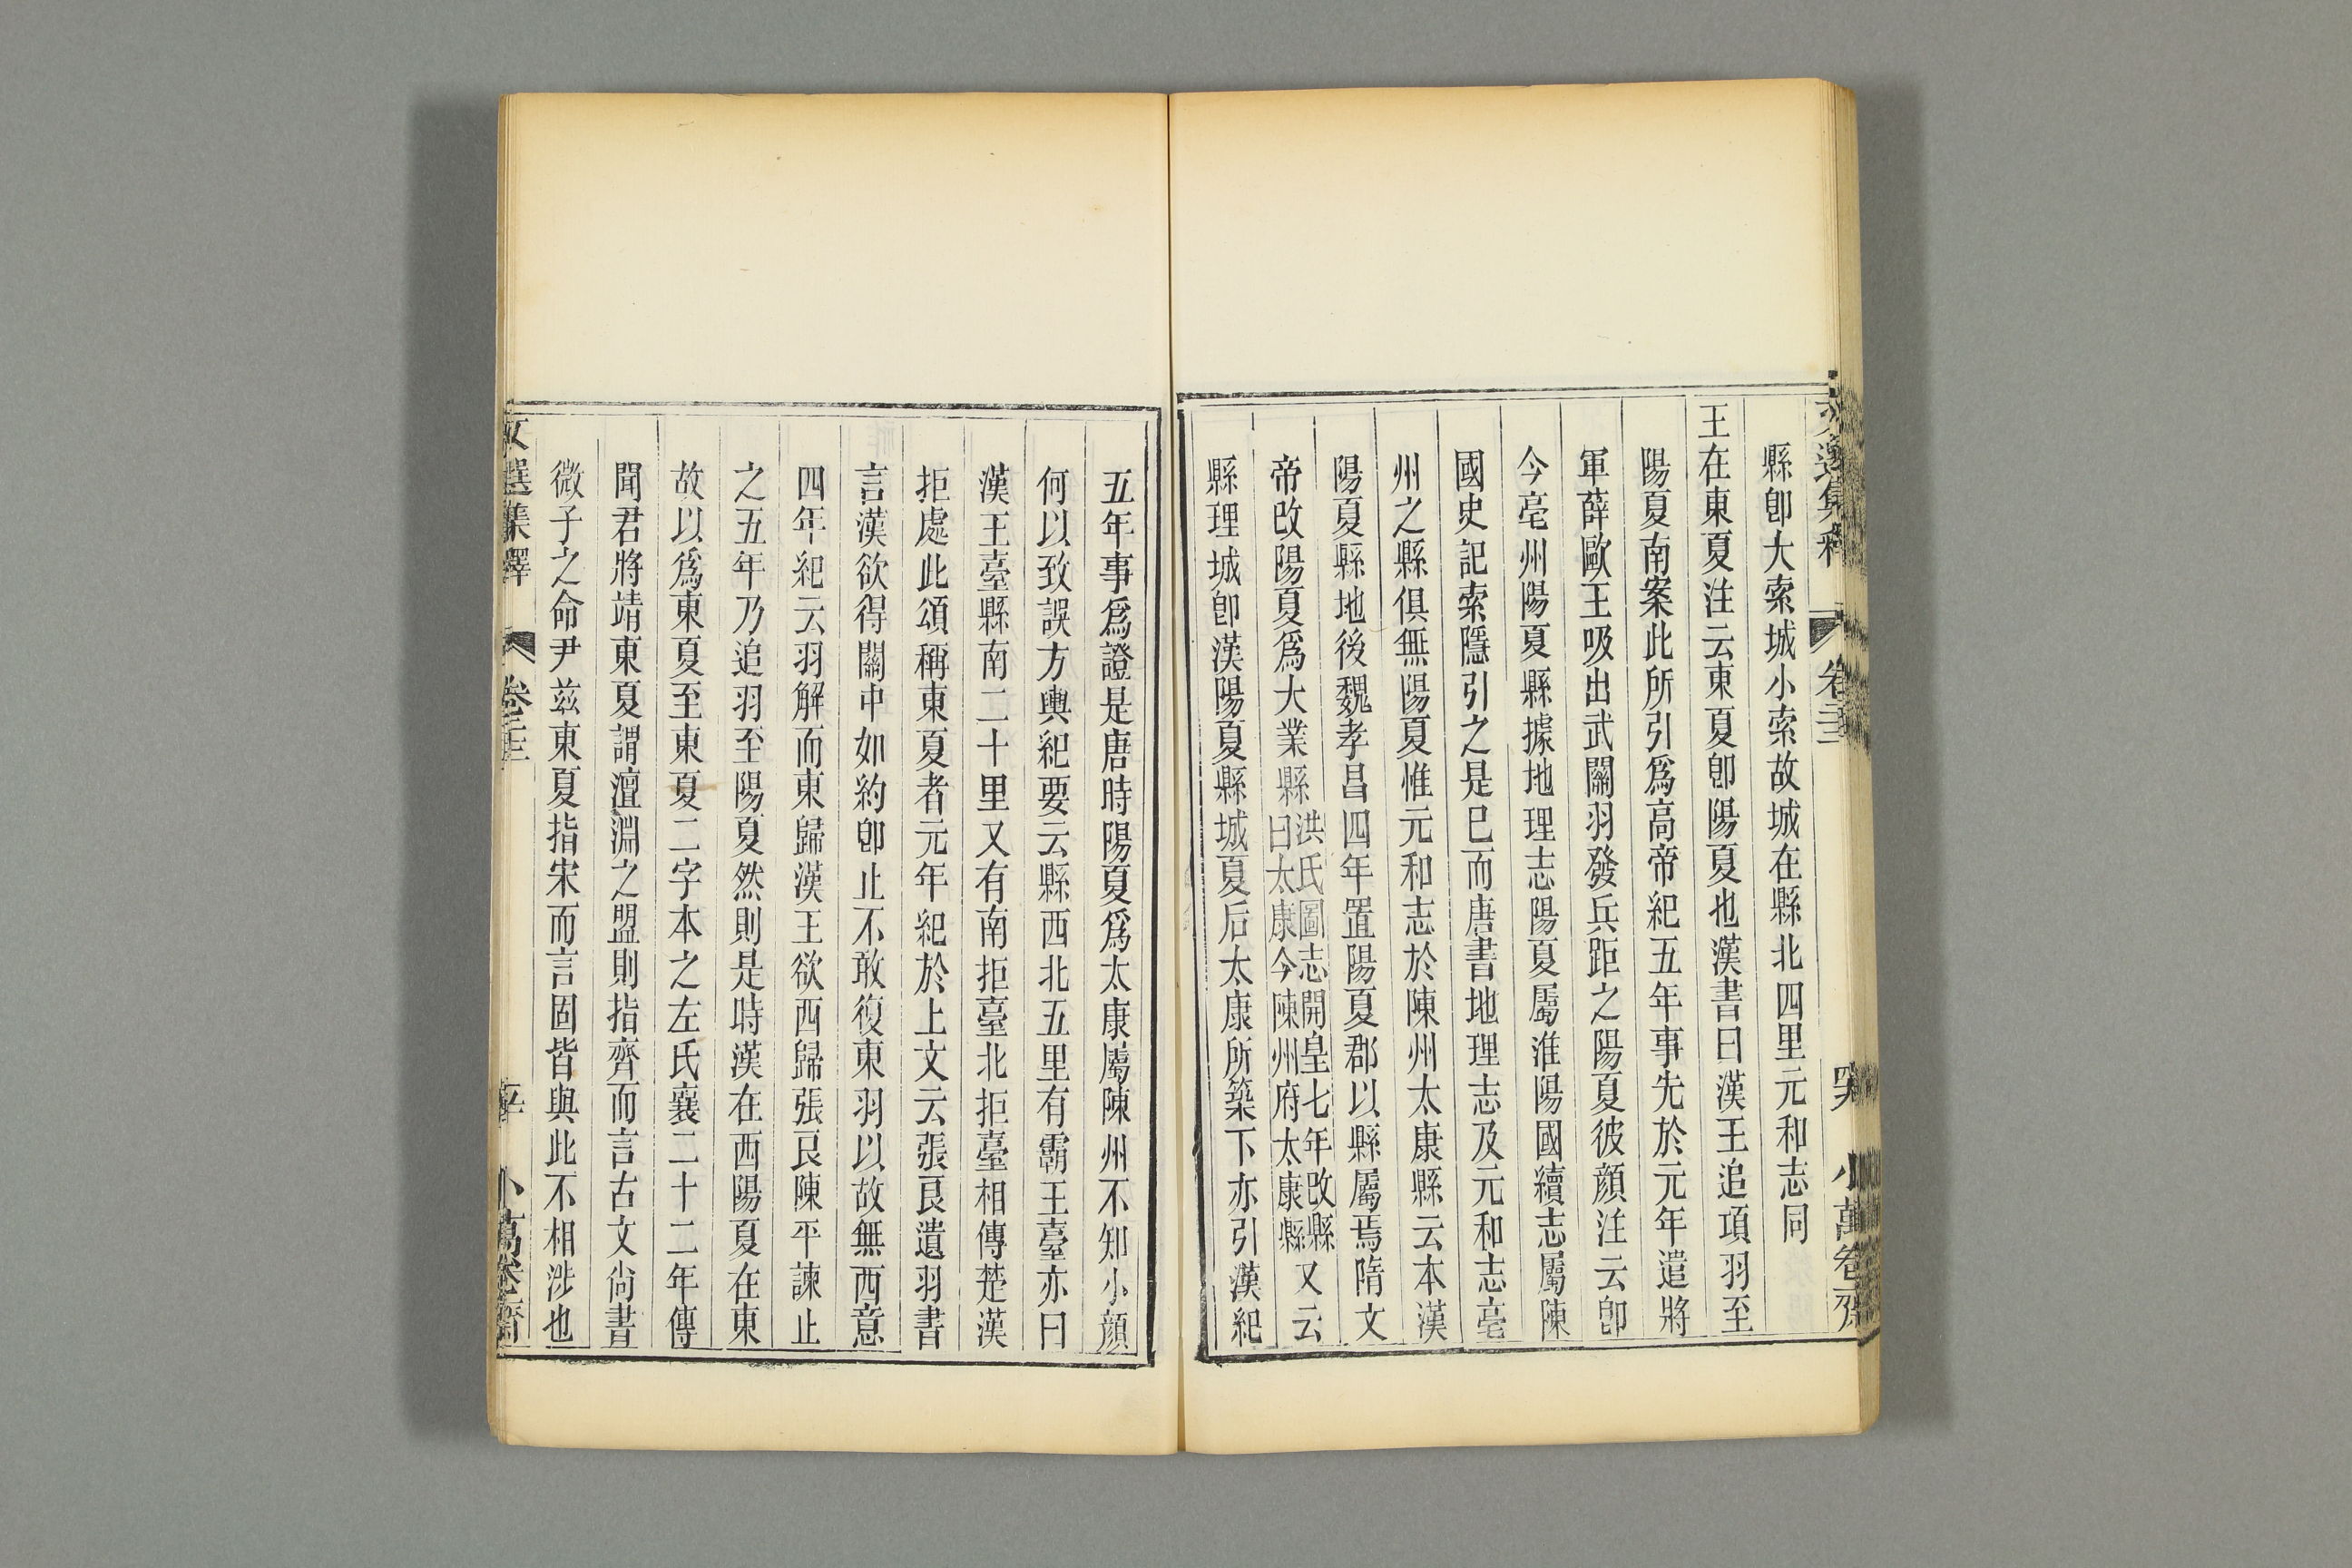 縣卽大索城小索故城在縣北四里元和志同
王在東夏注云東夏卽陽夏也漢書曰漢王追項羽至
陽夏南案此所引爲高帝紀五年事先於元年遣將
軍薛歐王吸出武關羽發兵距之陽夏彼顔注云卽
今亳州陽夏縣據地理志陽夏屬淮陽國續志屬陳
國史記索隱引之是巳而唐書地理志及元和志亳
州之縣俱無陽夏惟元和志於陳州太康縣云本漢
陽夏縣地後魏孝昌四年置陽夏郡以縣屬焉隋文
帝改陽夏爲大業縣洪氏圖志開皇七年改縣曰太康今陳州府太康縣又云
縣理城卽漢陽夏縣城夏后太康所築下亦引漢紀
五年事爲證是唐時陽夏爲太康屬陳州不知小顔
何以致誤方輿紀要云縣西北五里有霸王臺亦曰
漢王臺縣南二十里又有南拒臺北拒臺相傳楚漢
拒處此頌稱東夏者元年紀於上文云張良遺羽書
言漢欲得關中如約卽止不敢復東羽以故無西意
四年紀云羽解而東歸漢王欲西歸張良陳平諫止
之五年乃追羽至陽夏然則是時漢在西陽夏在東
故以爲東夏至東夏二字本之左氏襄二十二年傳
聞君將靖東夏謂澶淵之盟則指齊而言古文尙書
微子之命尹茲東夏指宋而言固皆與此不相涉也
文選集釋
小萬卷齋